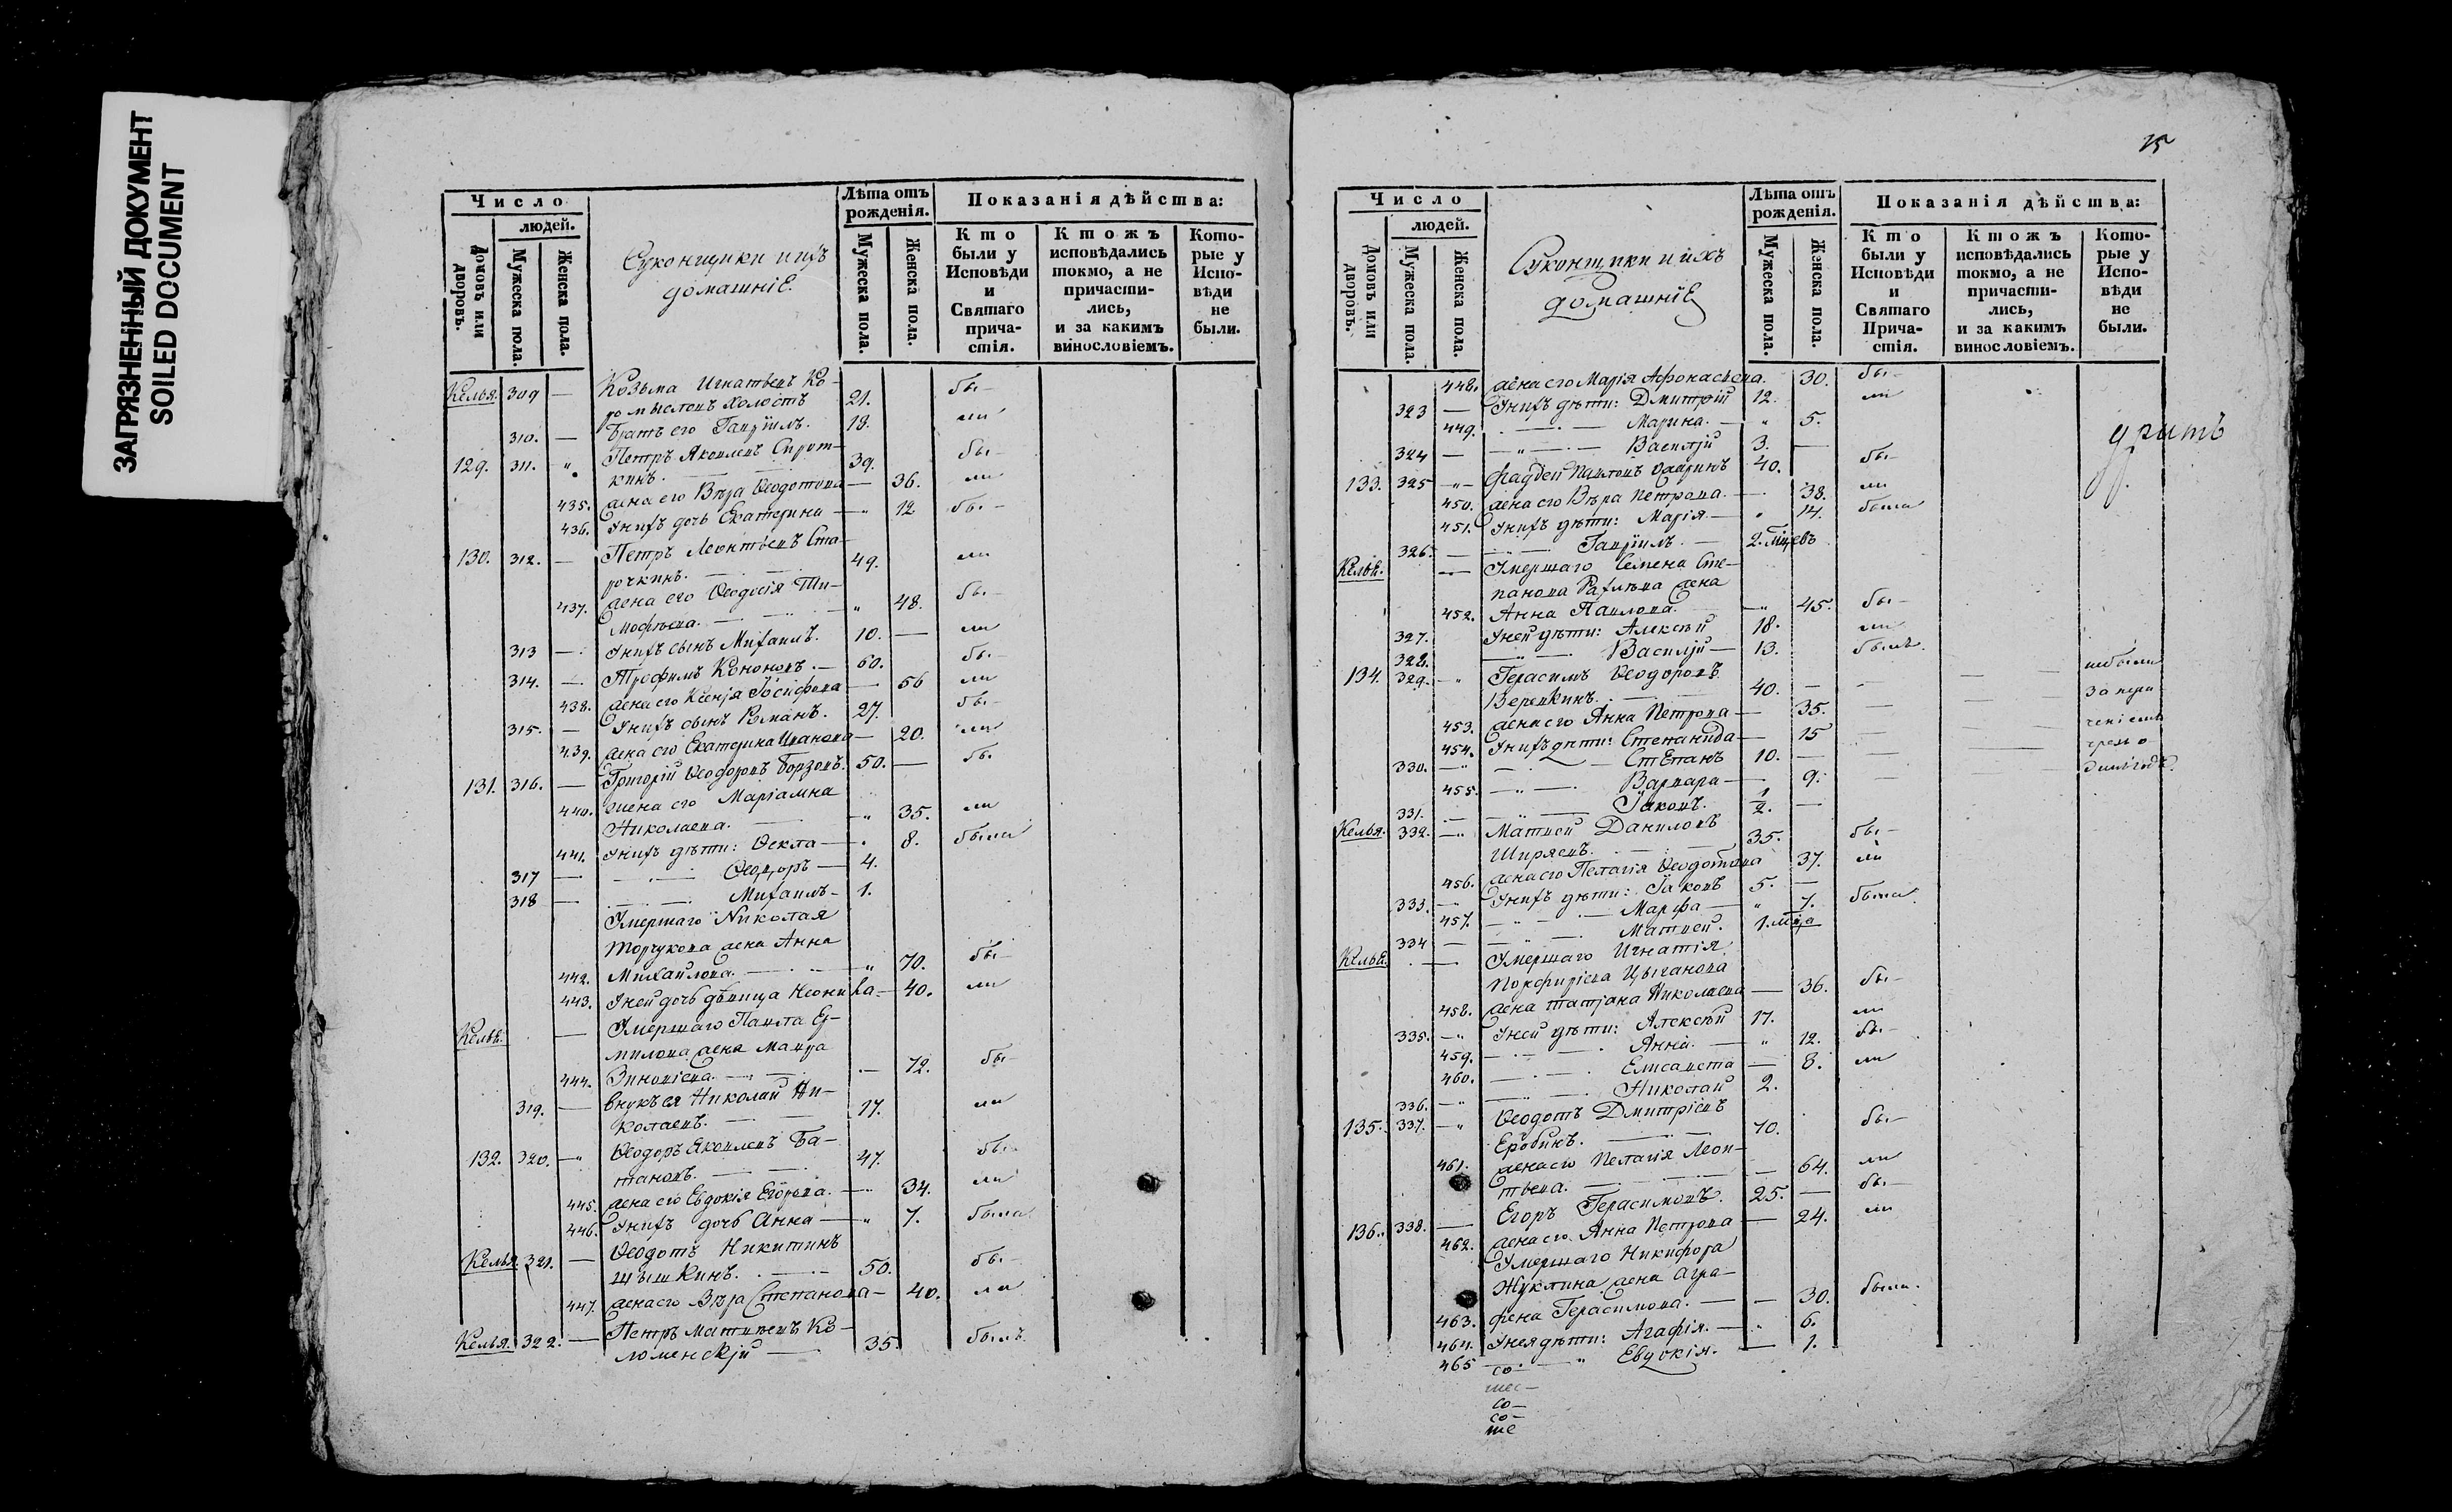 ЗАГРЯЗНЕННЫЙ ДОКУМЕНТ
SOILED DOCUMENT
Число
людей.
Домовъ или дворовъ.
Мужеска пола.
Женска пола.
Суконщики и ихъ
домашніе.
Лѣта отъ рожденія.
Мужеска пола.
Женска пола.
Показанія дѣйства:
Кто были у Исповѣди и Святаго причастія.
Ктожъ исповѣдались токмо, а не причастились, и за какимъ винословіемъ.
Которые у Исповѣди не были.
Келья. 309 — Козьма Игнатьевъ Ко-
ромысловъ холостъ 21. бы-
310. — Братъ его Гавріилъ. 18. ли
129. 311. " Петръ Яковлевъ Сирот-
кинъ. 39. бы-
435. жена его Вѣра Ѳеодотова — 36. ли
436. У нихъ дочь Екатерина — 12 бы-
130. 312. — Петръ Леонтьевъ Ста-
рочкинъ. 49. ли
437. жена его Ѳеодосія Ти-
мофѣева. — " 48. бы-
313 — У нихъ сынъ Михаилъ. 10. — ли
314. — Трофимъ Кононовъ. — 60. бы-
438. жена его Ксенія Іосифова — 56 ли
315. — У нихъ сынъ Романъ. 27. бы-
439. жена его Екатерина Иванова — 20. ли
131. 316. — Григорій Ѳеодоровъ Борзовъ. 50. — бы-
440. жена его Маріамна
Николаева. — " 35. ли
441. У нихъ дѣти: Ѳекла — 8. была
317 — Ѳеодоръ — 4.
318 — Михаилъ — 1.
Умершаго Николая
жена Анна
442. Михайлова. — " 70. бы-
443. У ней дочь дѣвица Неонила — 40. ли
Келья. — Умершаго Павла Ер-
милова жена Мавра
444. Зиновіева. — 72. бы-
319. — внукъ ея Николай Ни-
колаевъ. — 17. ли
132. 320. — " Ѳеодоръ Яковлевъ Ба-
тановъ. — 47. бы-
445. жена его Евдокія Егорова. — 34. ли
446. У нихъ дочь Анна — " 7. была
Келья. 321. — Ѳеодотъ Никитинъ
Шышкинъ. — 50. бы-
447. жена его Вѣра Степанова — 40. ли
Келья. 322. — Петръ Матвѣевъ Ко-
ломенскій — 35. былъ
15
Число
людей.
Домовъ или дворовъ.
Мужеска пола.
Женска пола.
Суконщики и ихъ
домашніе
Лѣта отъ рожденія.
Мужеска пола.
Женска пола.
Показанія дѣйства:
Кто были у Исповѣди и Святаго Причастія.
Ктожъ исповѣдались токмо, а не причастились, и за какимъ винословіемъ.
Которые у Исповѣди не были.
448. жена его Марія Афонасьева. 30. бы-
323 — У нихъ дѣти: Дмитрій 12. ли
449. — Марина. — " 5.
324 — Василій 3. —
133. 325 — " — Фаддей Павловъ 40. бы-
450. жена его Вѣра Петрова. — 38. ли
451. У нихъ дѣти: Марія — 14. была
326. — Гавріилъ. — 2. мцевъ
Келья. — Умершаго Семена Сте-
панова жена
452. Анна Павлова. — " 45. бы-
327. У ней дѣти: Алексѣй 18. ли
328. — Василій — 13. былъ.
134. 329. — " Герасимъ Ѳеодоровъ
Веревкинъ. — 40. — небыли
453. жена его Анна Петрова — 35. —
454. У нихъ дѣти: Степанида — 15 —
330. — Степанъ 10. —
455. — Варвара — 9.
331. — Іаковъ. 1/2. —
Келья. 332. — " Матвей Даниловъ
Ширяевъ. — 35. бы-
456. жена его Пелагія Ѳеодотова 37. ли
333. — У нихъ дѣти: Іаковъ 5. —
457. — Марфа — " 7. была.
334 — Матвей. 1. мца
Келья. — Умершаго Игнатія
Порфиріева Цыганова
458. жена Татіана Николаева — 36. бы-
335. — " У ней дѣти: Алексѣй 17. ли
459. — Анна. — " 12. бы-
460. — Елисавета — 8. ли
336. — " Николай 2.
135. 337. — " Ѳеодотъ Дмитріевъ
Ербинъ. — 70. бы-
461. жена его Пелагія Леон-
тьева. — 64. ли
136. 338. — Егоръ Герасимовъ. 25. — бы-
462. жена его Анна Петрова — 24. ли
Умершаго Никифора
Жуклина жена Агра-
463. фена Герасимова. — 30. была.
464. У нея дѣти: Агафія. — " 6.
465 — " Евдокія. — 1.
со-
со-
со-